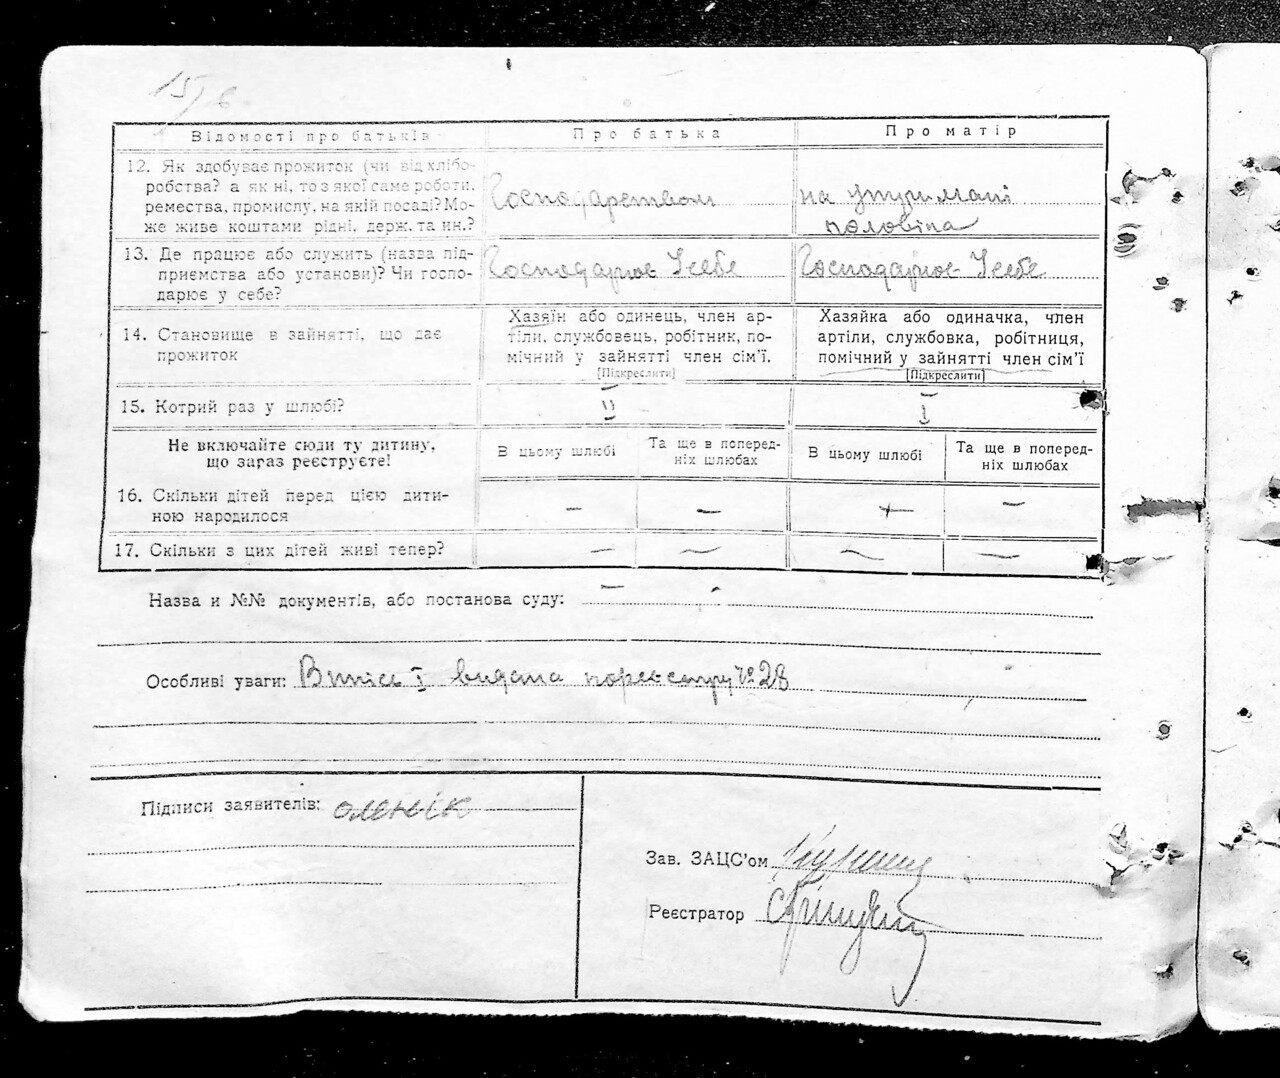 15/6
Відомості про батьків
Про батька
Про матір
12. Як здобуває прожиток (чи від хлібо-
робства? а як ні, то з якої саме роботи,
ремества, промислу, на якій посаді? Мо-
же живе коштами рідні, держ. та ин.?
Господарством
на утримані
половіна
13. Де працює або служить (назва під-
приємства або установи)? Чи госпо-
дарює у себе?
Господарює Усебе
Господарює Усебе
14. Становище в зайнятті, що дає
прожиток
Хазяїн або одинець, член ар-
тіли, службовець, робітник, по-
мічний у зайнятті член сім’ї.
[Підкреслити]
Хазяйка або одиначка, член
артіли, службовка, робітниця,
помічний у зайнятті член сім’ї
[Підкреслити]
15. Котрий раз у шлюбі?
II
I
Не включайте сюди ту дитину,
що зараз реєструєте!
В цьому шлюбі
Та ще в поперед-
ніх шлюбах
В цьому шлюбі
Та ще в поперед-
ніх шлюбах
16. Скільки дітей перед цією дити-
ною народилося
– – + –
17. Скільки з цих дітей живі тепер?
– – – –
Назва и №№ документів, або постанова суду: –
Особливі уваги: Витісь I видана пореєстру № 28
Підписи заявителів: оленік
Зав. ЗАЦС’ом
Реєстратор